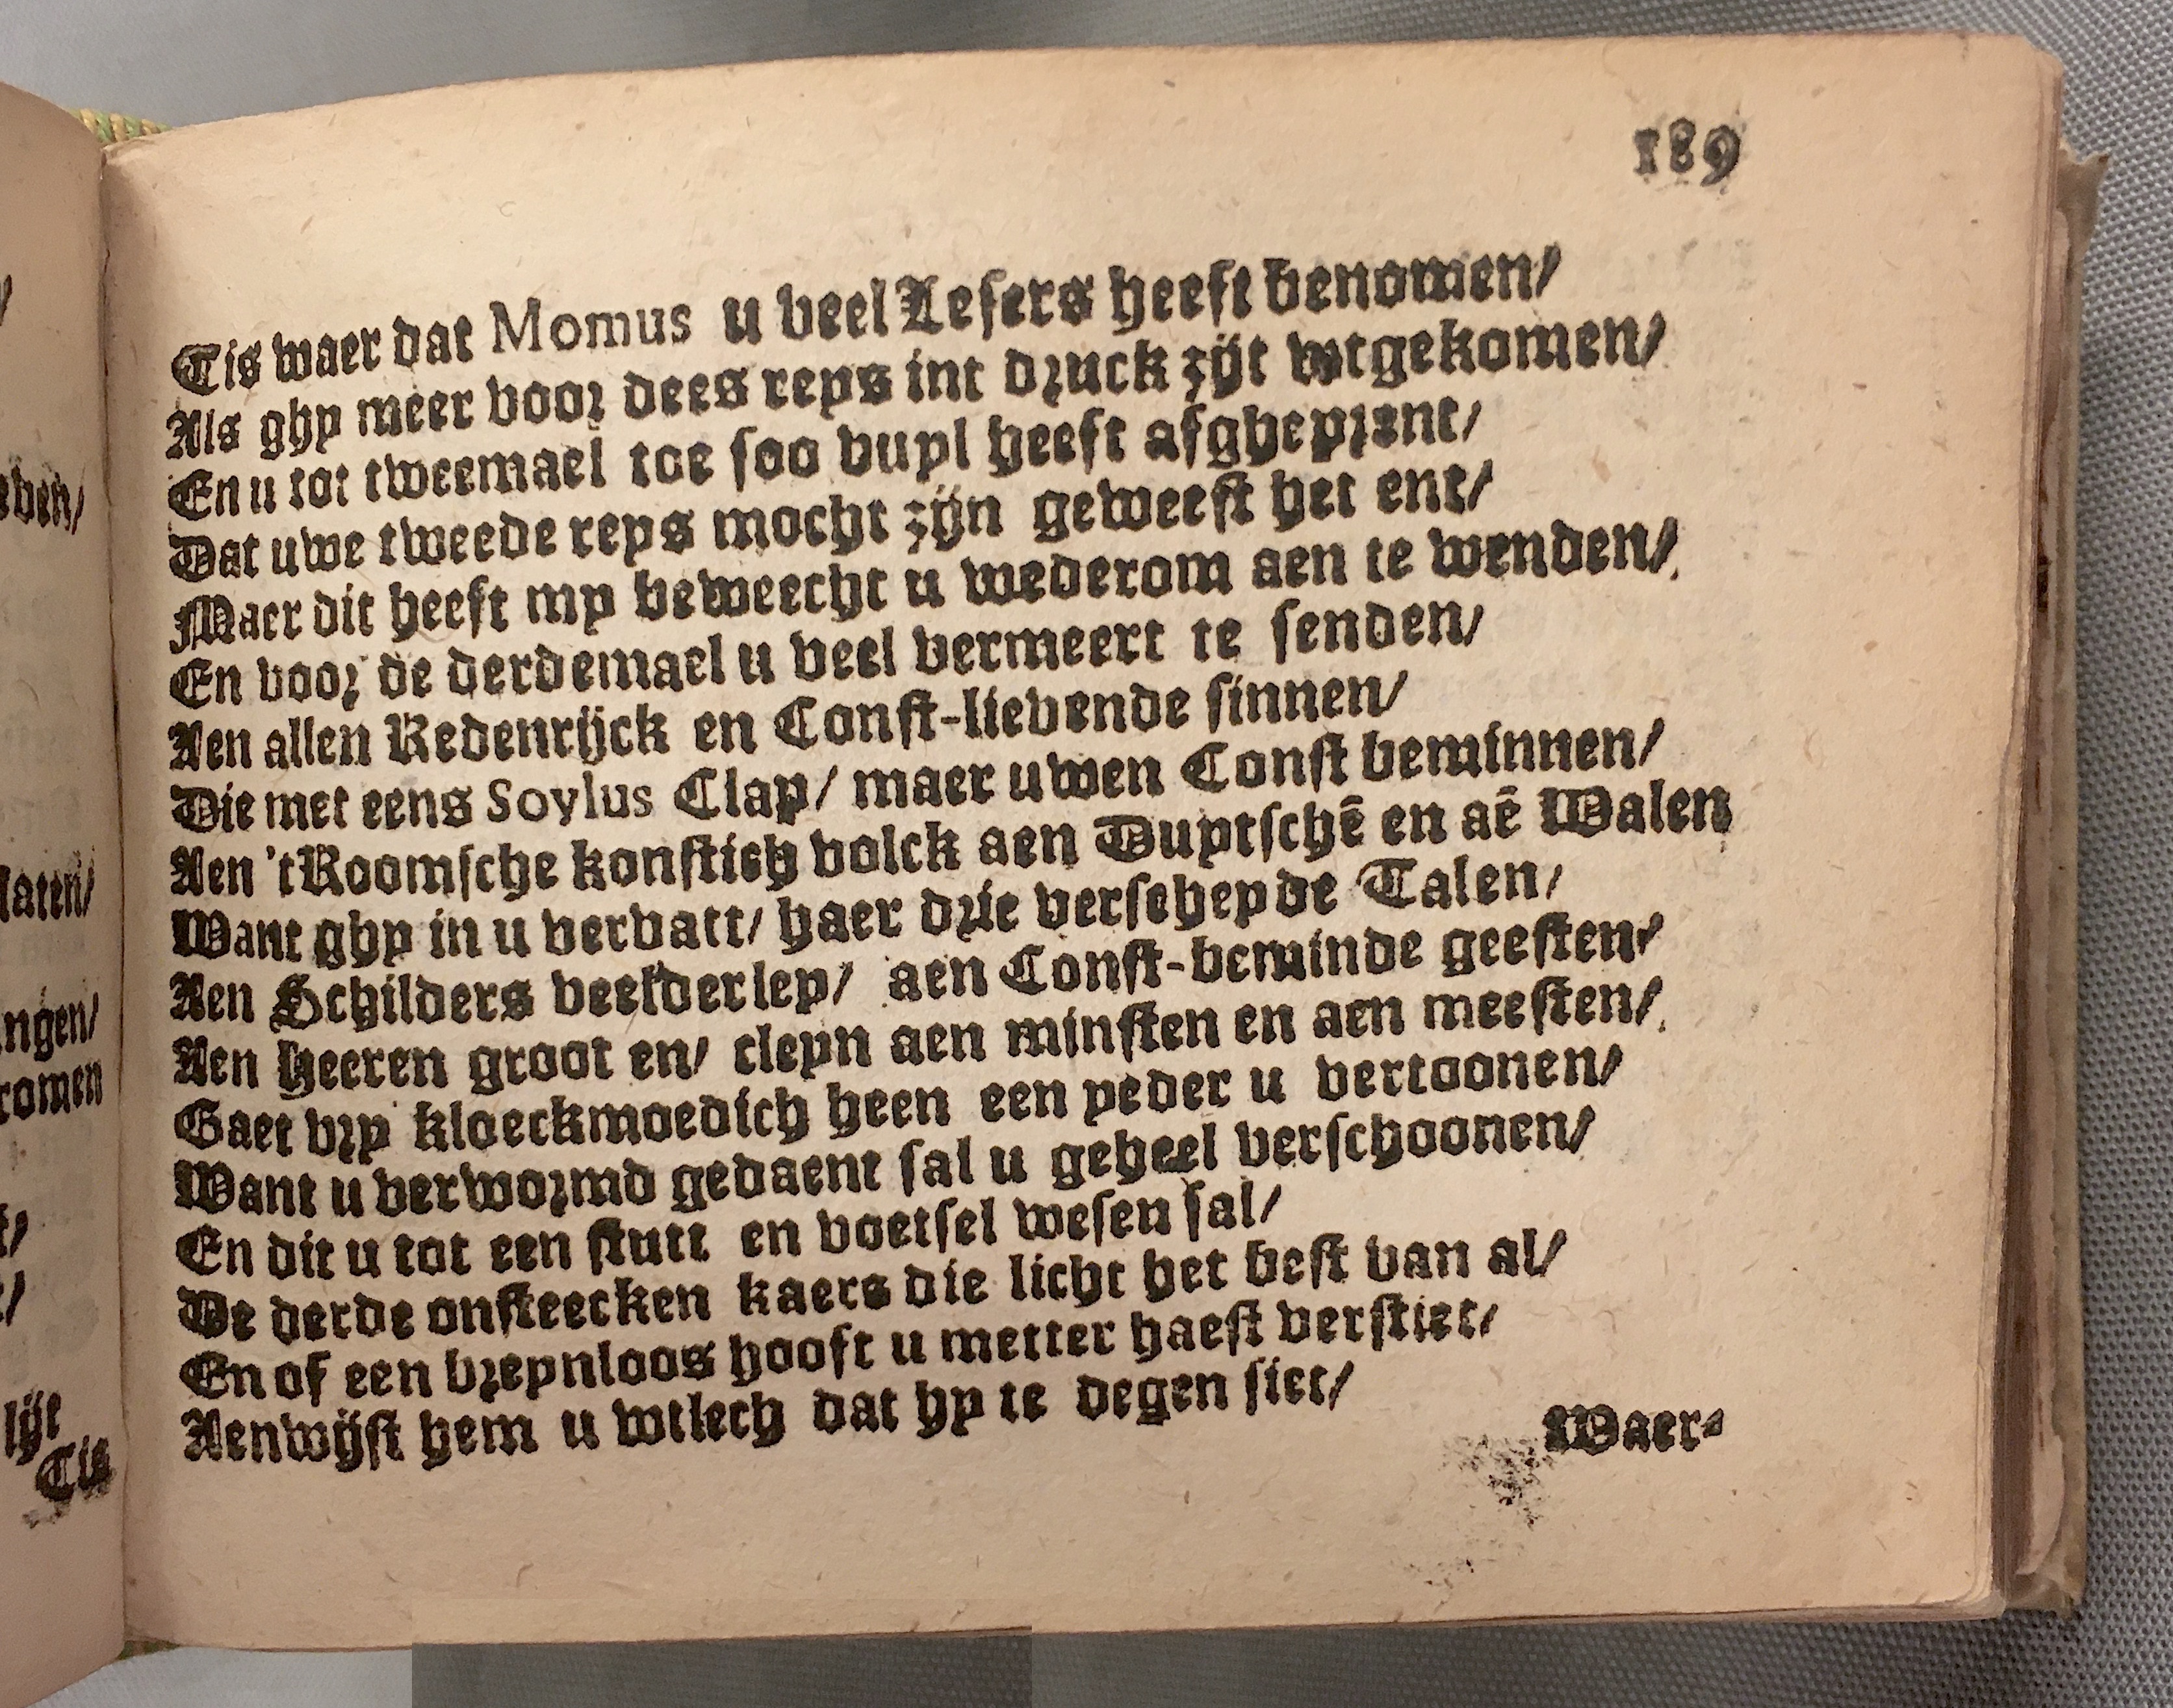 189
Tis waer dat Momus u veel Lesers heeft benomen/
Als ghy meer voor dees reys int druck zijt wtgekomen/
En u tot tweemael toe soo vuyl heeft afgheprent/
Dat uwe tweede reys mocht zijn geweest het ent/
Maer dit heeft my beweecht u wederom aen te wenden/
En voor de derdemael u veel vermeert te senden/
Aen allen Redenrijck en Const-lievende sinnen/
Die met eens Soylus Clap/ maer uwen Const beminnen/
Aen 't Roomsche konstich volck aen Duytschē en aē Walen
Want ghy in u vervatt/ haer drie verscheyde Talen/
Aen Schilders veelderley/ aen Const-beminde geesten/
Aen Heeren groot en/ cleyn aen minsten en aen meesten/
Gaet vry kloeckmoedich heen een yeder u vertoonen/
Want u verwormd gedaent sal u geheel verschoonen/
En dit u tot een stutt en voetsel wesen sal/
De derde onsteecken kaers die licht het best van al/
En of een breynloos hooft u metter haest verstiet/
Aenwijst hem u wtlech dat hy te degen siet/
Waer-
even/
laten/
ngen/
romen
t/
lijt
Tis